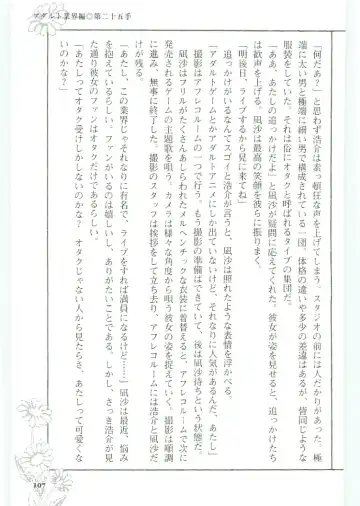 アダルト業界編◎第二十五手
「何だあ?」と思わず浩介は素っ頓狂な声を上げてしまう。スタジオの前には人だかりがあった。極
端に太い男と極端に細い男で構成されている一団。体格の違いや多少の差違はあるが、皆同じような
服装をしていた。それは俗にオタクと呼ばれるタイプの集団だ。
「ああ、あたしの追っかけだよ」と凪沙が疑問に応えてくれた。彼女が姿を見せると、追っかけたち
は歓声を上げる。凪沙は最高の笑顔を彼らに振りまく。
「明後日、ライブするから見に来てね」
追っかけがいるなんてスゴイと浩介が言うと、凪沙は照れたような表情を浮かべる。
「アダルトゲームとかアダルトアニメにしか出ていないけど、それなりに人気あんだ、あたし」
撮影はアフレコルームの一つで行う。もう撮影の準備はできていて、後は凪沙待ちという状態だ。
凪沙はフリルがたくさんあしらわれたメルヘンチックな衣装に着替えると、アフレコルームで次に
発売されるゲームの主題歌を唄う。カメラは様々な角度から唄う彼女の姿を捉えていく。撮影は順調
に進み、無事に終了した。撮影のスタッフは挨拶をして立ち去り、アフレコルームには浩介と凪沙だ
けが残る。
「あたし、この業界じゃそれなりに有名で、ライブをすれば満員になるけど……」凪沙は最近、悩み
を抱えているらしい。ファンがいるのは嬉しいし、ありがたいことである。しかし、さっき浩介が見
た通り彼女のファンはオタクだけであるらしい。
「あたしってオタク受けしかしないのかな? オタクじゃない人から見たらさ、あたしって可愛くな
いのかな?」
107